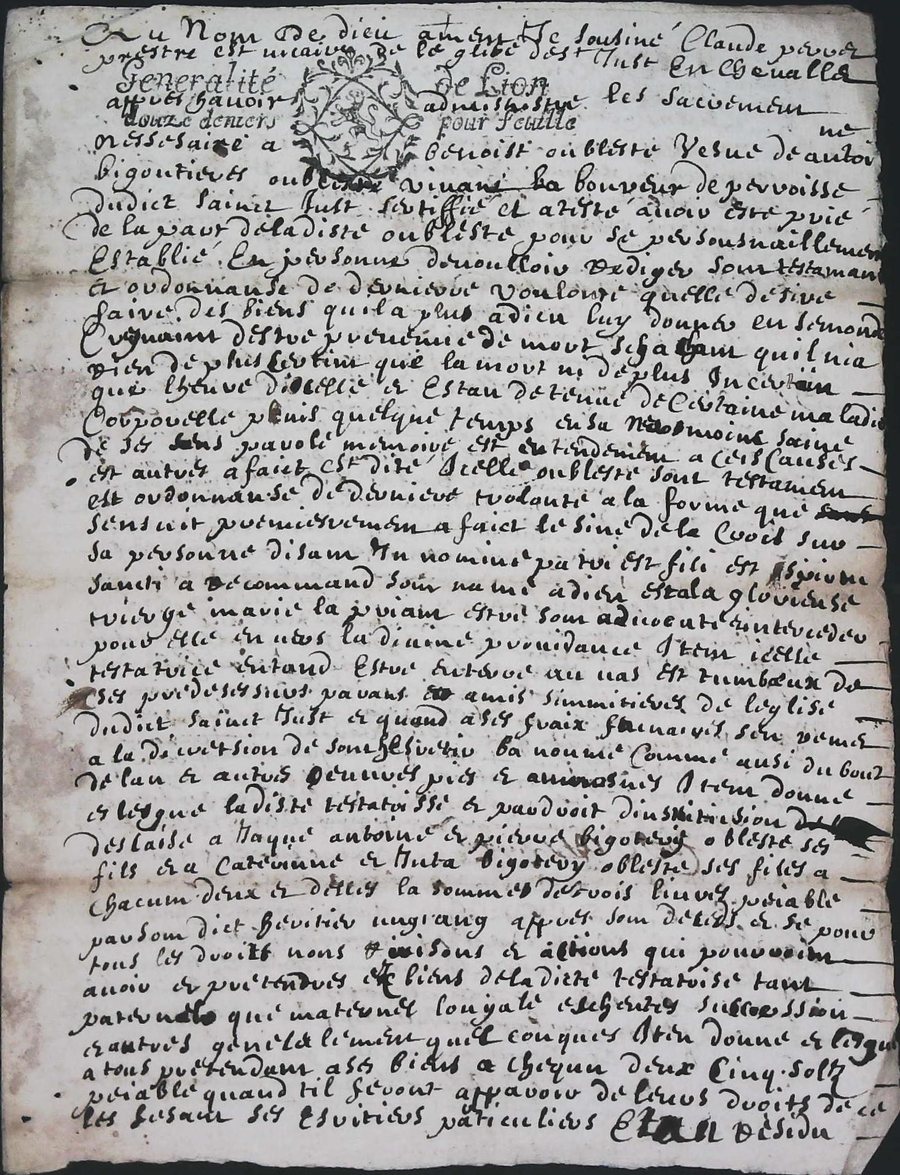 Au Nom De dieu amen Je sousiné Claude perret
prestre est vicaire de leglise de st Just En Chevalle
Generalité de Lion
appres havoir administre les sacrement
douze deniers pour feuille
nessesaire a benoist oubleste Vesue de antoi ne
bigoutieres oubleste vivant La bouveur de perroisse
dudict sainct Just sertiffie et ateste avoir este prié
de la part deladiste oubleste pour se personnaillement
Establie En personne de voulloir Rediger son testamant
et ordonnanse de derniere voulonte quelle desire
faire des biens quila plus a dieu luy donner en se monde
Creynant destre prevenue de mort schachant quil nia
Rien de plus certain que la mort ni de plus Incertain
que lheure dicelle et Estan detenue de Certaine maladie
Corporelle puis quelque temps ensa neaomoins saine
de ses sens parole memoire est entendement a ceis causes
est autres a faict est dite Icelle oubleste sont testament
est ordonnanse de derniere volante a la forme que
sensuit premierement a faict le sine de la Crois sur
sa personne disant In nomine patri est fili est spiritu
sancti a Recommand son name a dieu est a la glorieuse
vierge marie la priant estre son advocate et interceder
pour elle envers la divine providance Item icelle
testatrice entand Estre enterre au vas est tumbeux de
ses predesessurs parans et amis simmitieres de leglise
dudict sainct Just et quand a ses fraix funaires sen remet
a la discretion de son heretir ba nomme Comme ausi du bout
de lan et autres oeuvres pies et aumosnes Item donne
et legue ladiste testatoisse et par droit dinstitusion
deslaise a Jaque antoine et pierre bigotery obleste ses
fils et a Caterinne et Juta bigotery obleste ses files a
Chacum deux et delles la somme de trois livres peiable
par som dict heritier ung an appres som deses et se pour
tous les droits nons Raisons et actions qui pourroint
avoir et pretendres es biens de la dicte testatoise tant
paternel que maternel loyale eschentes sucsession
et autres generalement quel conques Iten donne et legue
a tous pretendant a ses biens a chequn deux Cinq soltz
peiable quand til feront apparoir de leurs droits de ce
les fesant ses Esritiers paticuliers Etan Residu